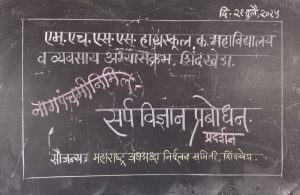 दि. २९ जुलै, २०२५
एम.एच.एस.एस. हायस्कूल, क. महाविद्यालय
व व्यवसाय अभ्यासक्रम, शिंदखेडा.
नागपंचमीनिमित्त:-
सर्प विज्ञान प्रबोधन.
प्रदर्शन
सौजन्य: महाराष्ट्र अंधश्रद्धा निर्मूलन समिती, शिंदखेडा.